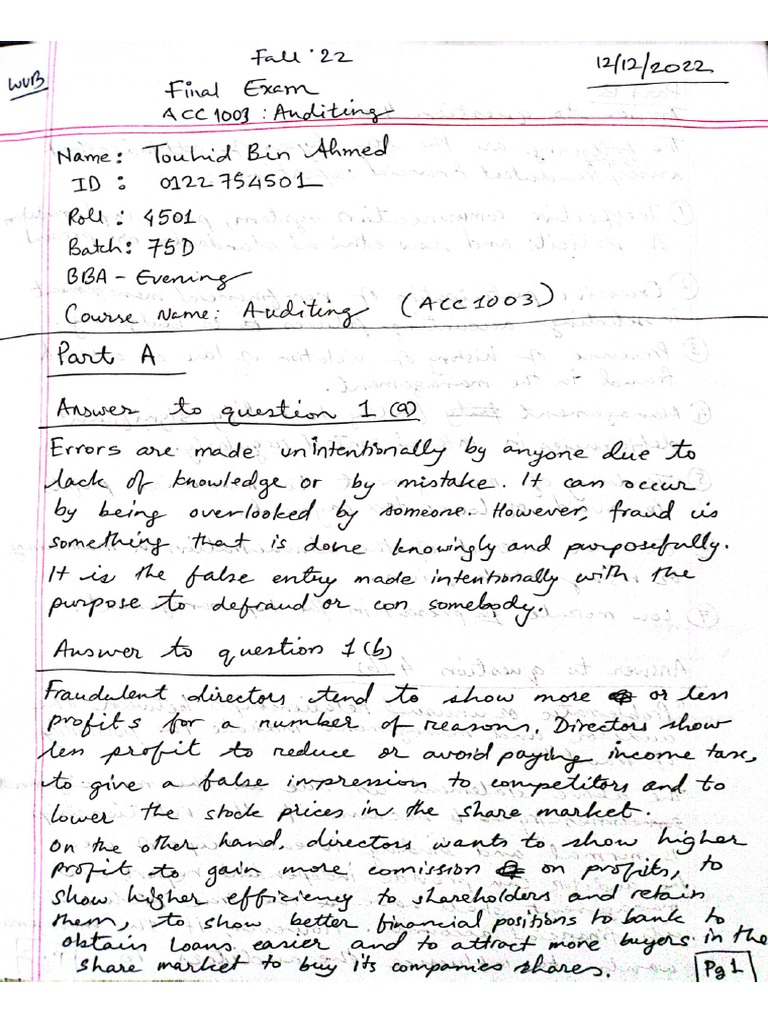 Fall '22
12/12/2022
WUB
Final Exam
ACC 1003 : Auditing
Name: Touhid Bin Ahmed
ID : 0122754501
Roll : 4501
Batch: 75D
BBA - Evening
Course Name: Auditing (ACC1003)
Part A
Answer to question 1 (a)
Errors are made unintentionally by anyone due to
lack of knowledge or by mistake. It can occur
by being overlooked by someone. However, fraud is
something that is done knowingly and purposefully.
It is the false entry made intentionally with the
purpose to defraud or con somebody.
Answer to question 1(b)
Fraudulent directors tend to show more or less
profits for a number of reasons. Directors show
less profit to reduce or avoid paying income tax,
to give a false impression to competitors and to
lower the stock prices in the share market.
On the other hand, directors wants to show higher
profit to gain more comission on profits, to
show higher efficiency to shareholders and retain
them, to show better financial positions to bank to
obtain loans easier and to attract more buyers in the
share market to buy its companies shares.
Pg 1